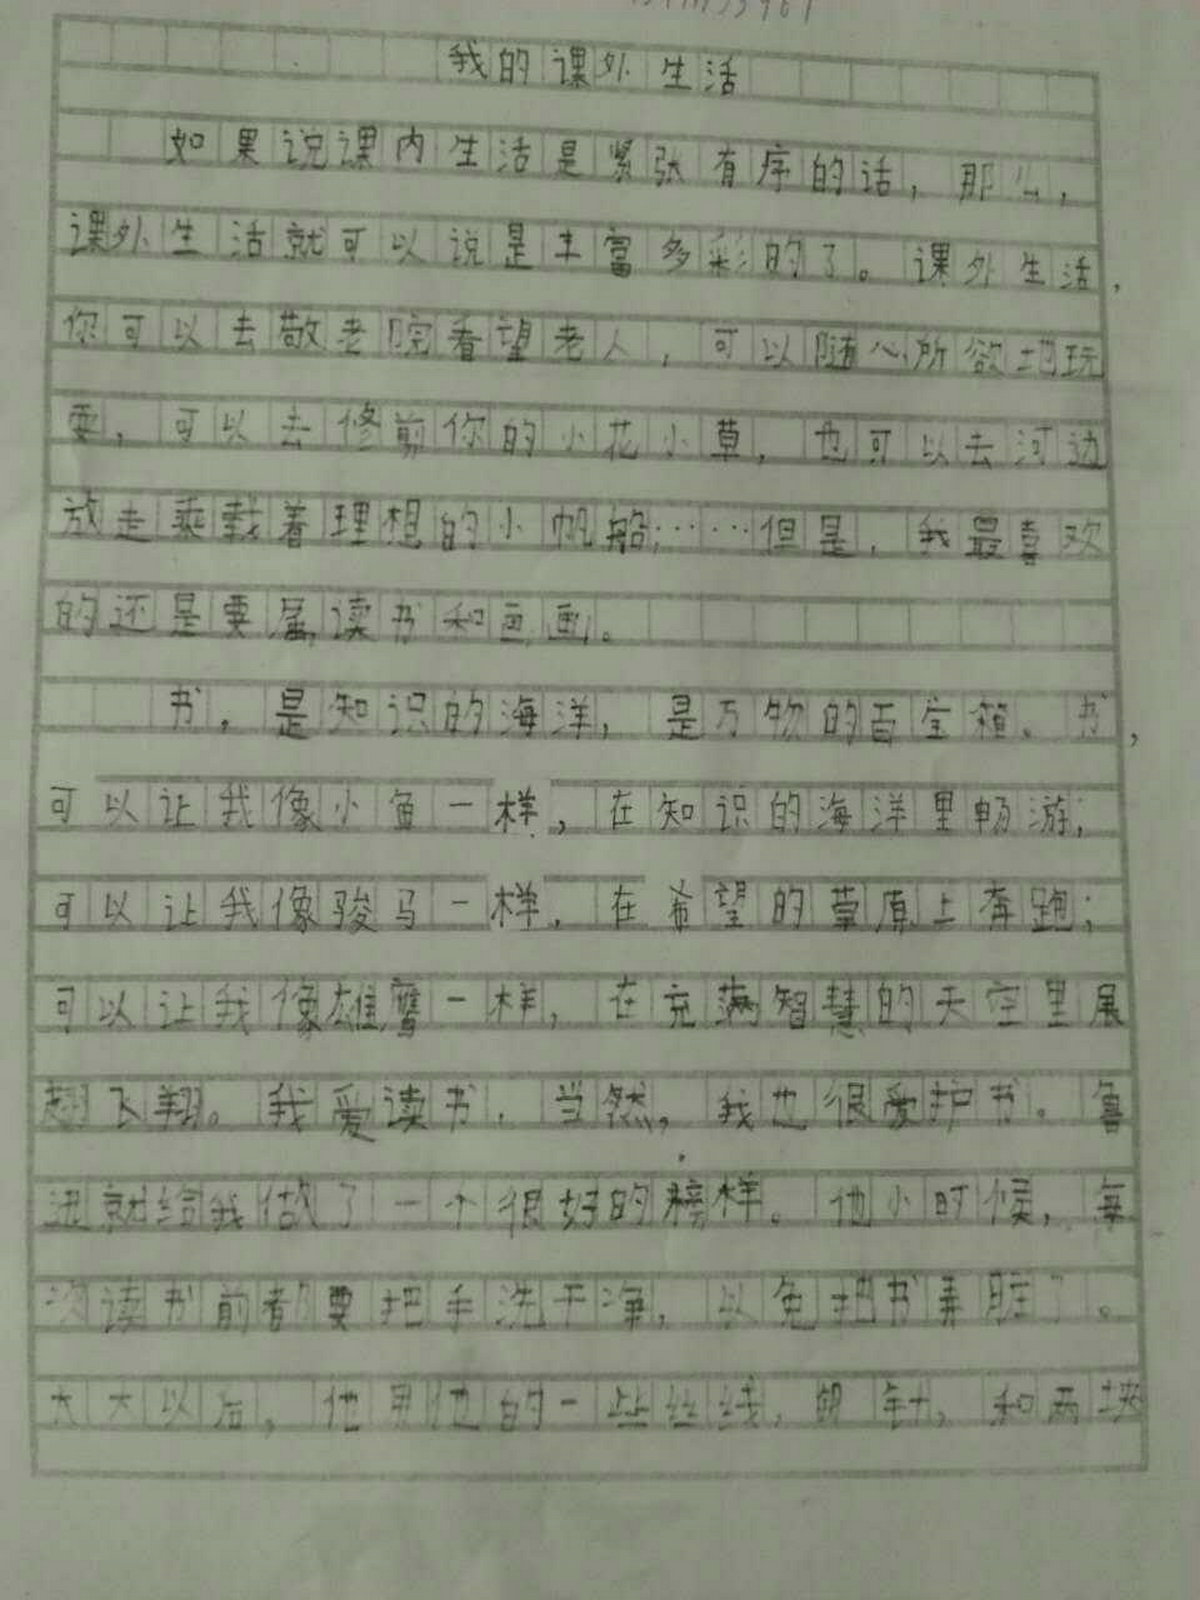 我的课外生活
如果说课内生活是紧张有序的话，那么，
课外生活就可以说是丰富多彩的了。课外生活，
你可以去敬老院看望老人，可以随心所欲地玩
耍，可以去修剪你的小花小草，也可以去河边
放走乘载着理想的小帆船；……但是，我最喜欢
的还是要属读书和画画。
书，是知识的海洋，是万物的百宝箱。书，
可以让我像小鱼一样，在知识的海洋里畅游；
可以让我像骏马一样，在希望的草原上奔跑；
可以让我像雄鹰一样，在充满智慧的天空里展
翅飞翔。我爱读书，当然，我也很爱护书。鲁
迅就给我做了一个很好的榜样。他小时候，每
次读书前都要把手洗干净，以免把书弄脏了。
大大以后，他用他的一些丝线，钢针，和两块